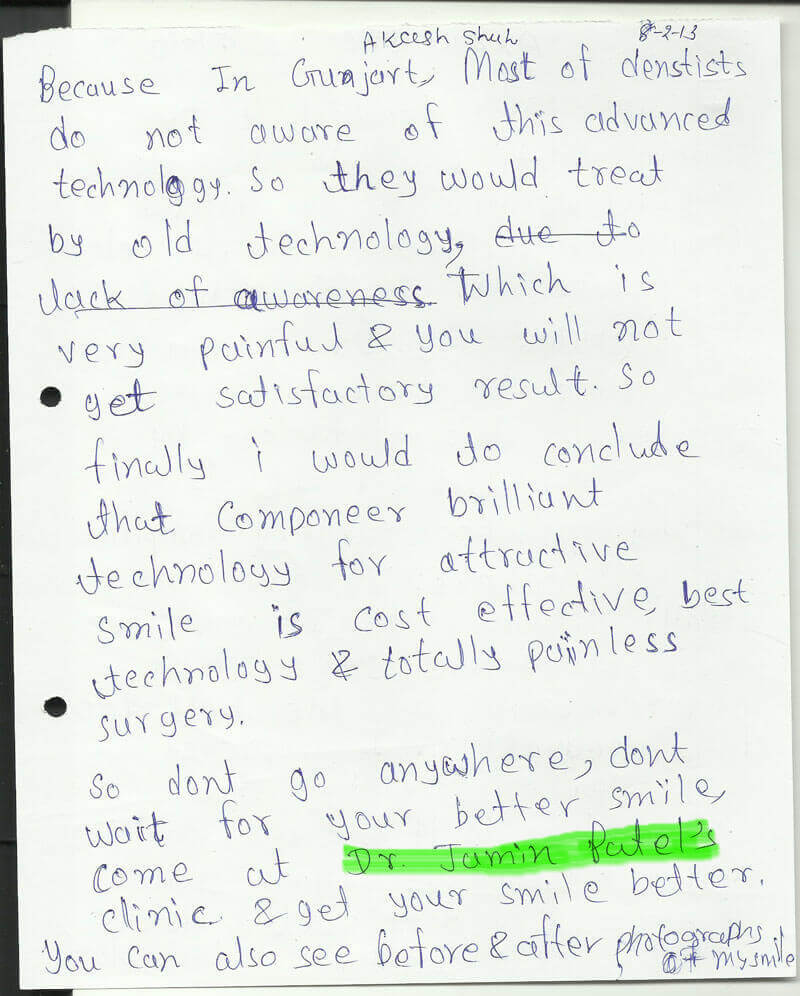 Akcesh Shuh 8-2-13
Because In Gunjart, Most of denstists
do not aware of this advanced
technology. So they would treat
by old technology, due to
lack of awareness Which is
very painful & you will not
get satisfactory result. So
finally i would to conclude
that componeer brilliant
technology for attractive
smile is cost effective, best
technology & totally painless
surgery.
So dont go anywhere, dont
wait for your better smile,
come at Dr. Jamin Patel's
clinic & get your smile better.
You can also see before & after photographs
of mysmile